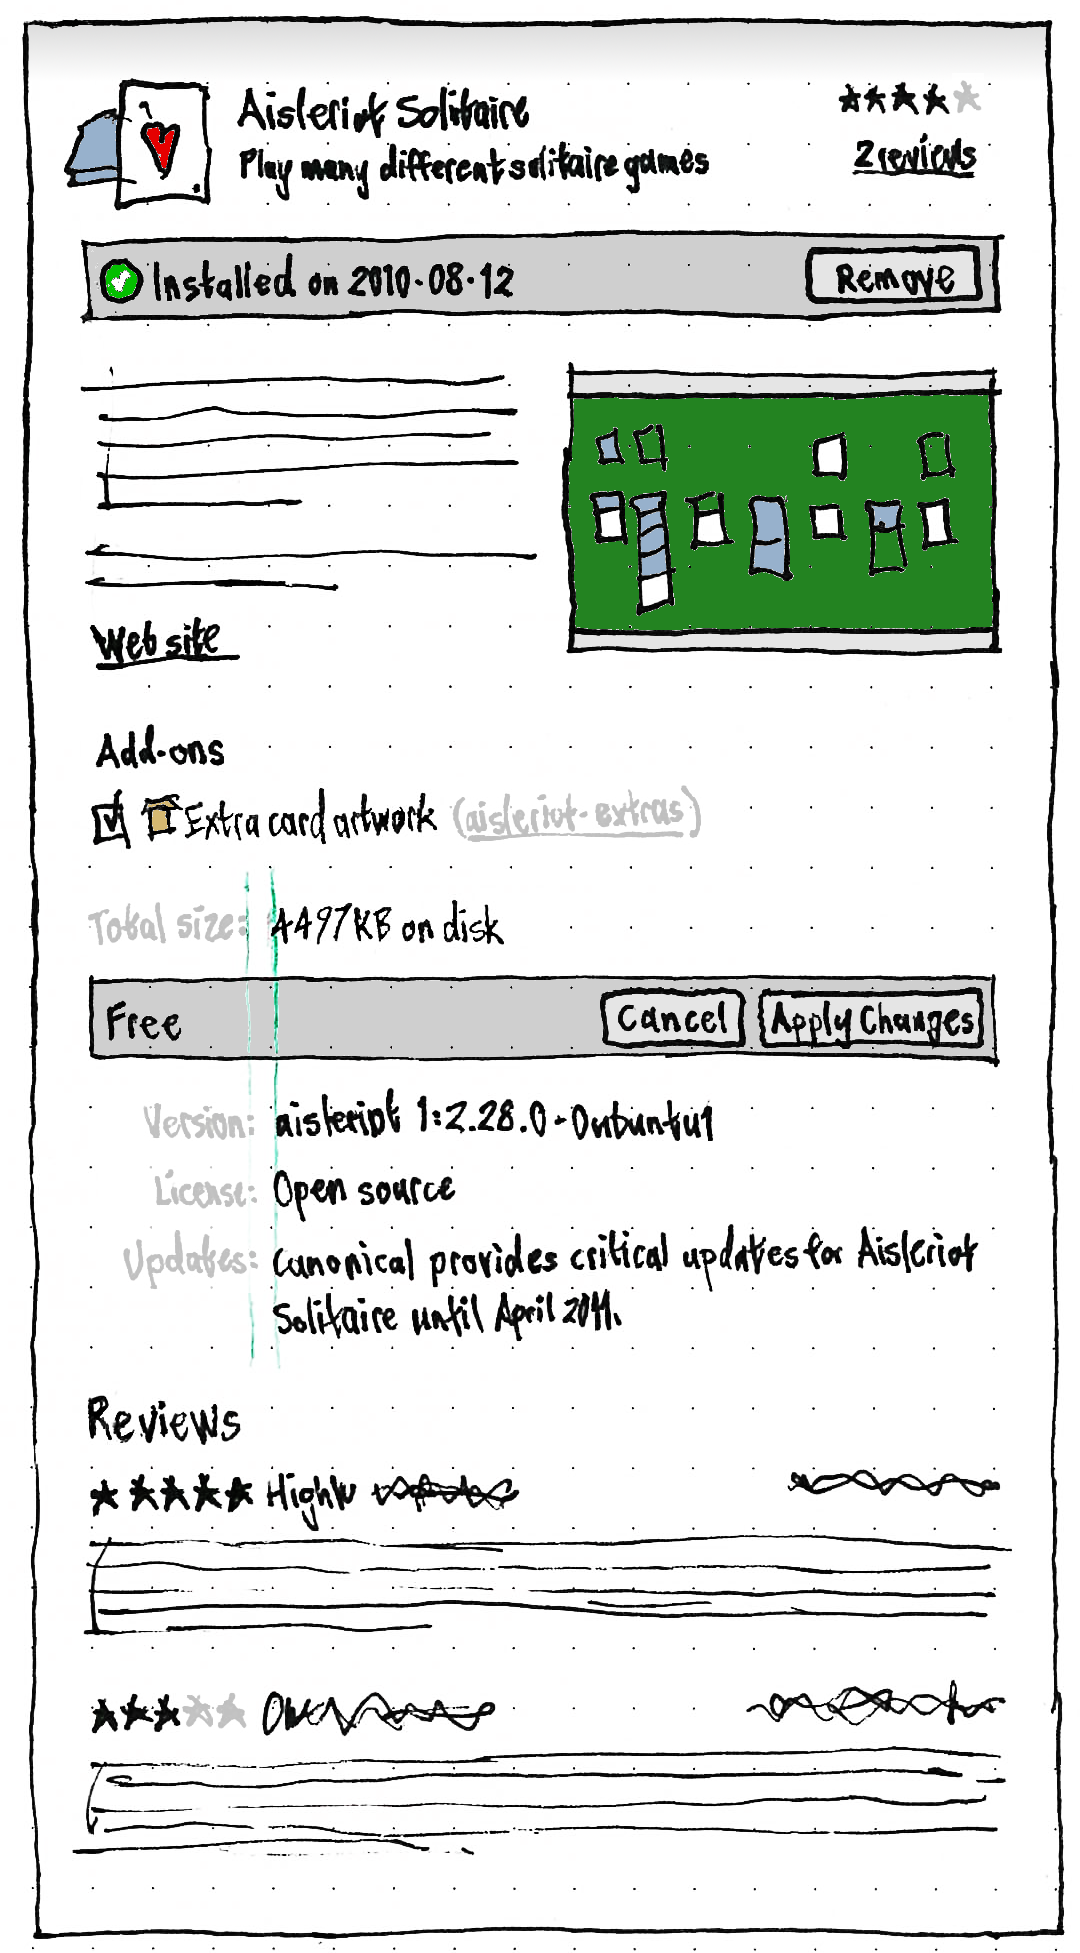 Aisleriot Solitaire
Play many different solitaire games
2 reviews
Installed on 2010-08-12
Remove
Web site
Add-ons
Extra card artwork (aisleriot-extras)
Total size: 4497KB on disk
Free
Cancel
Apply Changes
Version: aisleriot 1:2.28.0-0ubuntu1
License: Open source
Updates: Canonical provides critical updates for Aisleriot
Solitaire until April 2011.
Reviews